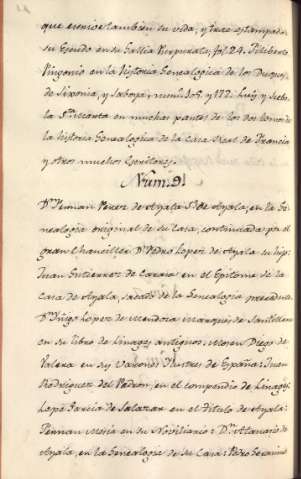 que escrive tambien su vida, y trae estampado
su Escudo en su Gallia Purpurata, fol. 24. Philiberto
Pingonio en la Historia Genealogica de los Duques
de Saxonia, y Saboya, num. 105. y 172. Luis, y Scebo.
la Sta. Marta en muchas partes de los dos tomos de
la Historia Genealogica de la Casa Real de Francia
y otros muchos Escritores.
Núm. 9.
Dn. Fernan Perez de Ayala Sr. de Ayala, en la Ge-
nealogia original de su Casa, continuada por el
gran Chanciller Dn. Pedro Lopez de Ayala su hijo:
Juan Gutierrez de Caraia en el Epitome de la
Casa de Ayala, sacado de la Genealogia precedente.
Dn. Iñigo Lopez de Mendoza Marques de Santillana
en su libro de Linages antiguos: Mosen Diego de
Valera en sus Varones Ilustres de España: Juan
Rodriguez del Padron, en el compendio de Linages:
Lope Garcia de Salazar en el titulo de Ayala:
Fernan Mexia en su Nobiliario: Dn. Atanasio de
Ayala, en la Genealogia de su Casa: Pedro Geronimo